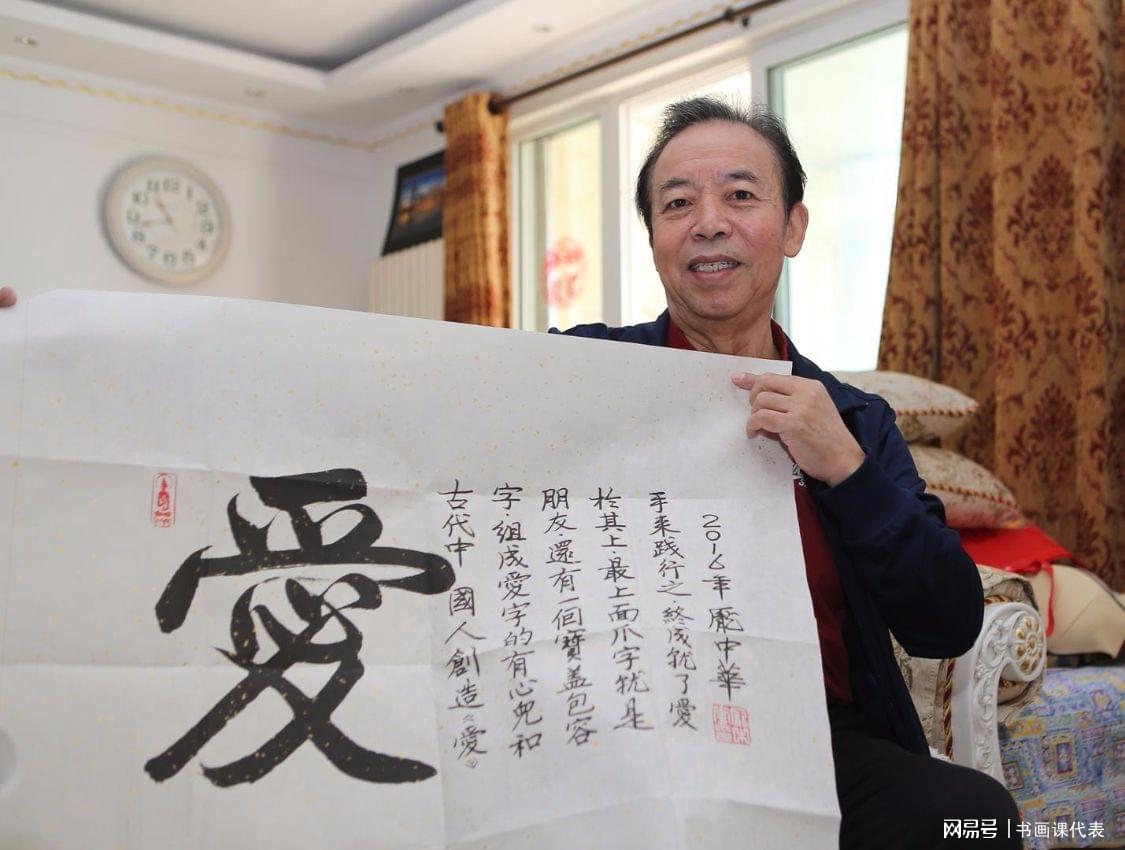 愛
古代中國人創造《愛》
字組成愛字的有心兒和
朋友.還有一個寶盖包容
於其上.最上面爪字就是
手来践行之.終成就了愛
2016年龐中華
网易号 | 书画课代表